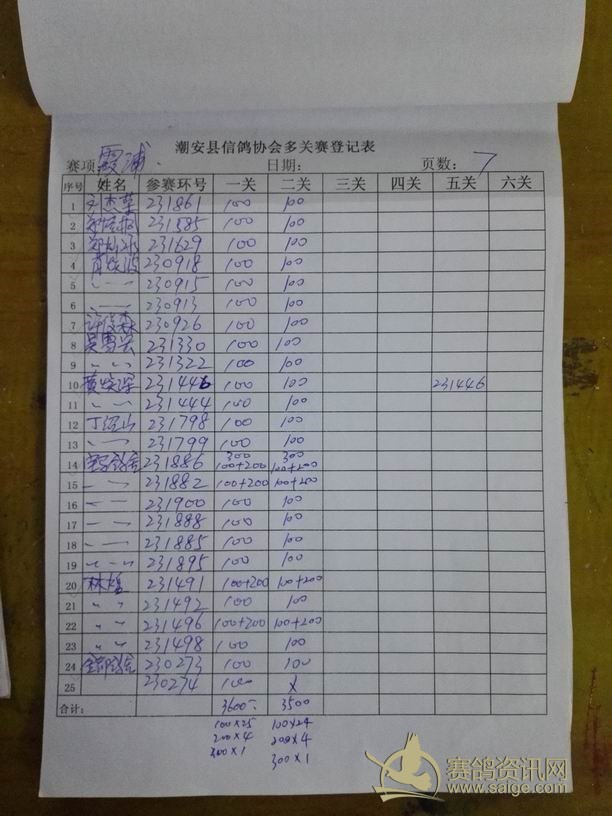 潮安县信鸽协会多关赛登记表
赛项: 霞浦. 日期: 页数: 7
序号 姓名 参赛环号 一关 二关 三关 四关 五关 六关
1 231861 100 100
2 231385 100 100
3 231629 100 100
4 230918 100 100
5 〃 一 230915 100 100
6 〃 一 230913 100 100
7 许俊森 230926 100 100
8 231330 100 100
9 〃 〃 231322 100 100
10 231446 100 100 231446
11 〃 一 231444 100 100
12 231798 100 100
13 〃 一 231799 100 100
14 231886 300 100+200 300 100+200
15 〃 一 231882 100+200 100+200
16 〃 一 231900 100 100
17 〃 一 231888 100 100
18 〃 一 231885 100 100
19 〃 〃 231895 100 100
20 231491 100+200 100+200
21 〃 〃 231492 100 100
22 〃 〃 231496 100+200 100+200
23 〃 〃 231498 100 100
24 230273 100 100
25 230274 100 x
合计: 3600 3500
100×25 100×24
200×4 200×4
300×1 300×1
赛鸽资讯网
www.saige.com